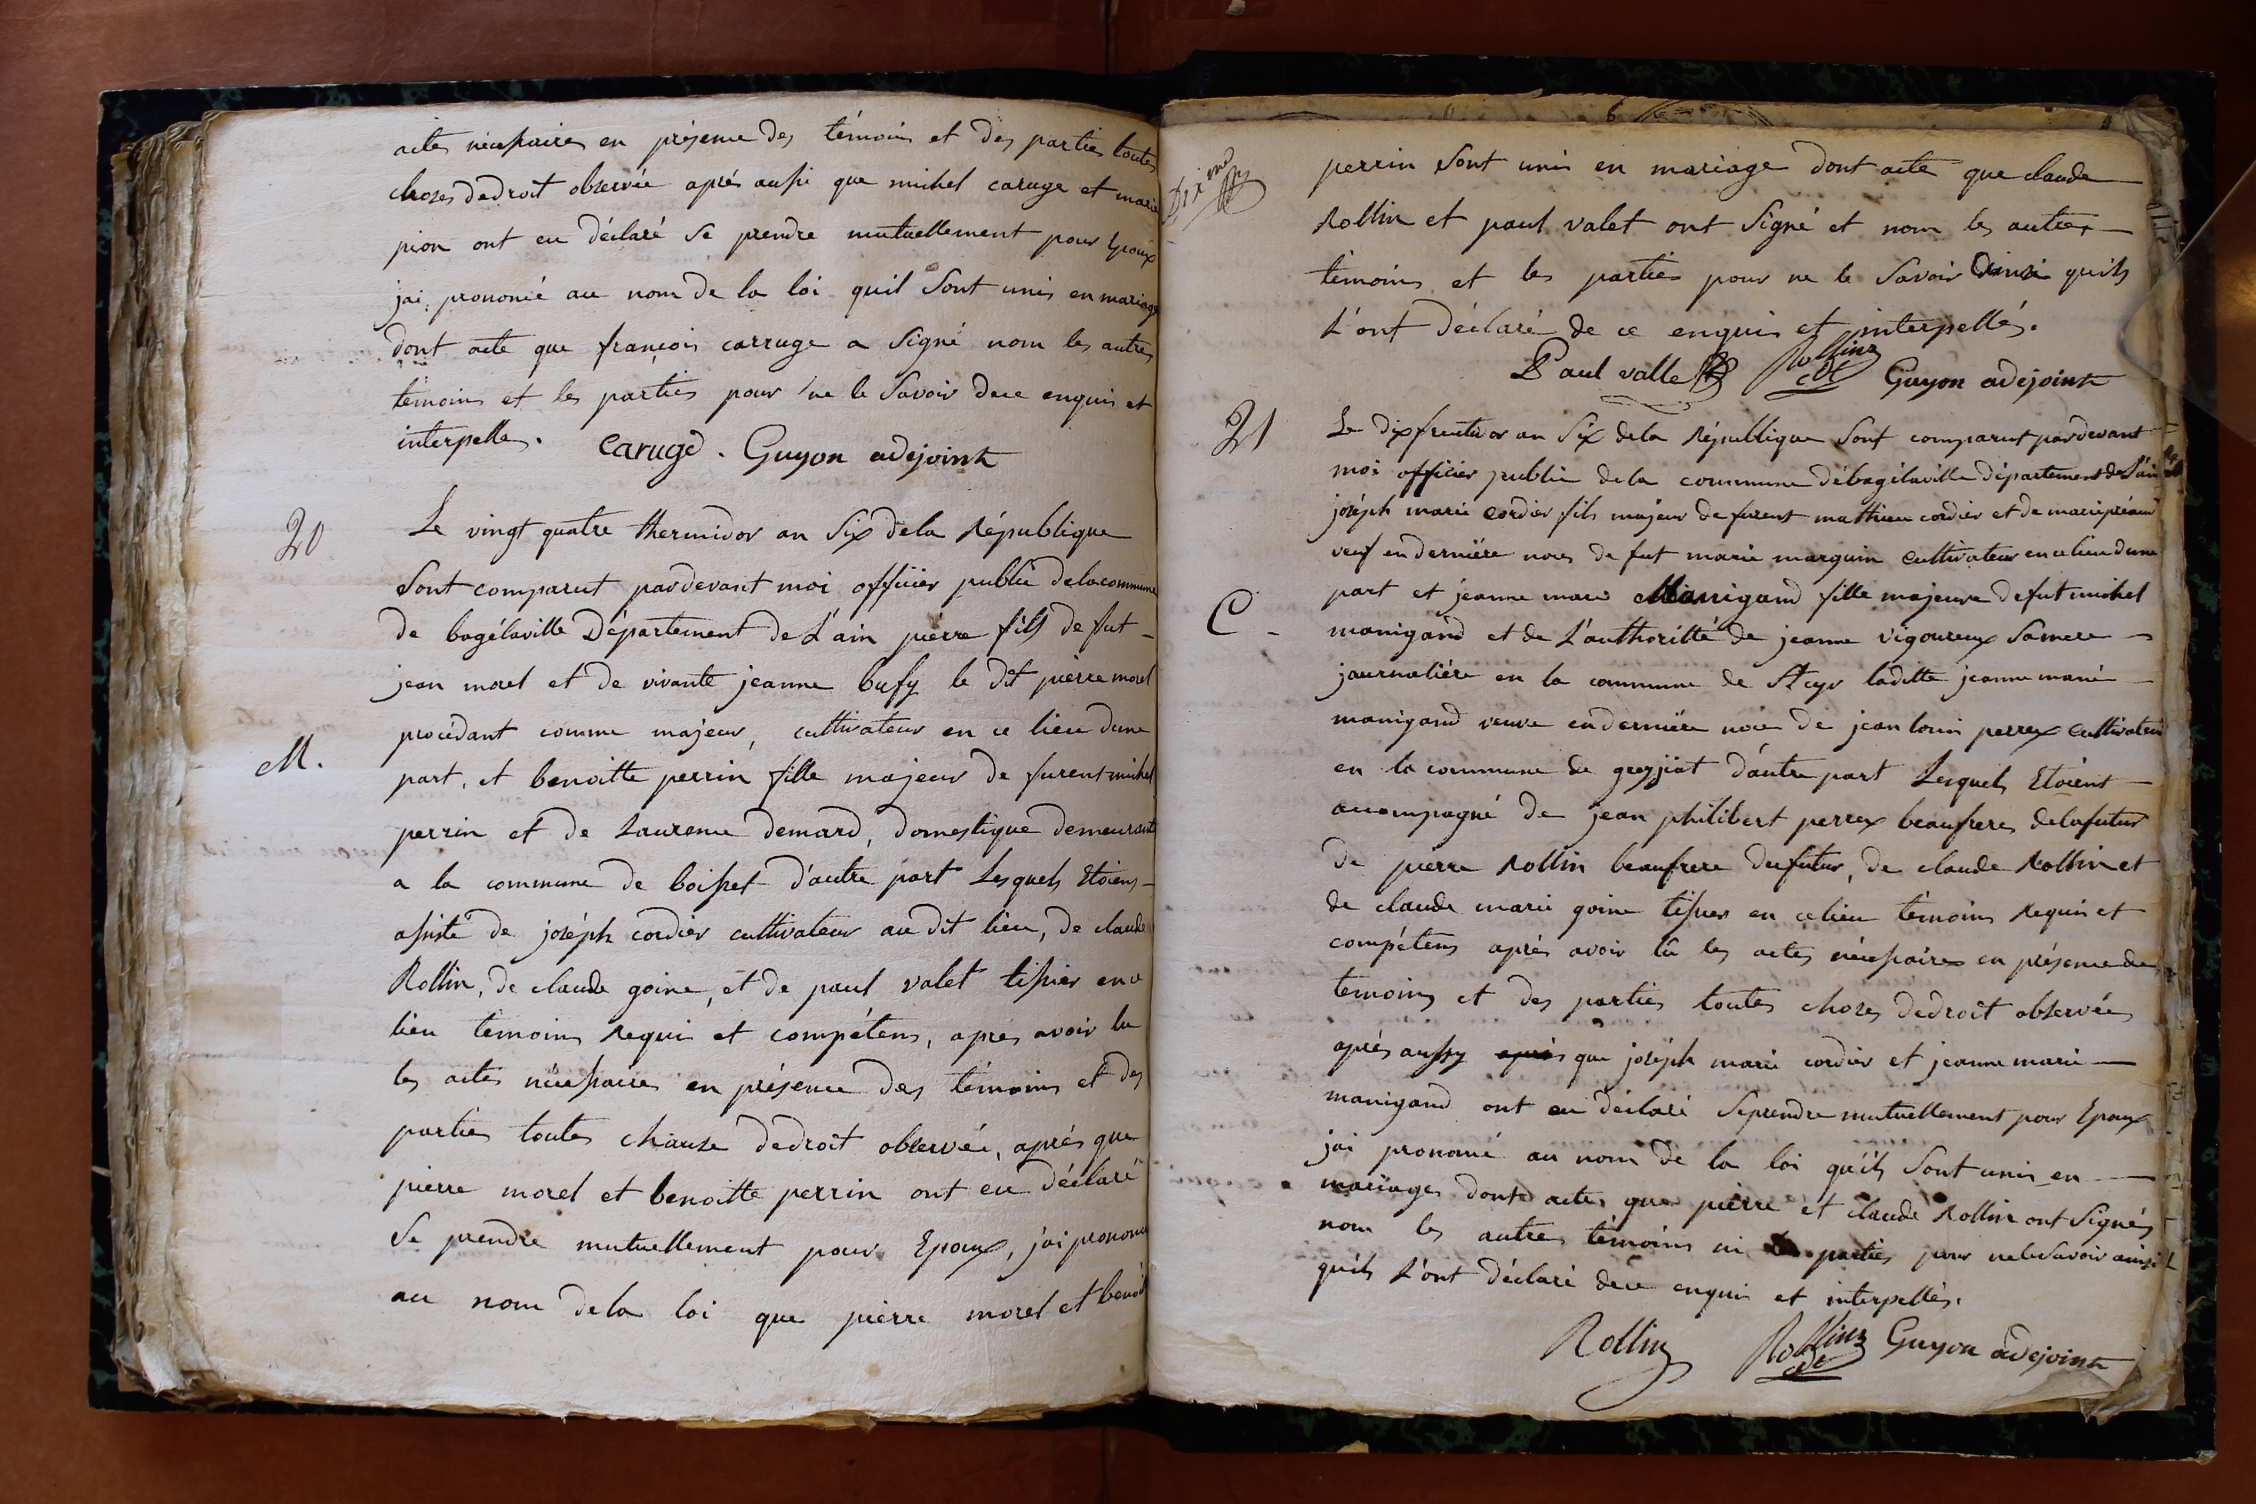 actes nécessaires en présence des témoins et des parties toutes
choses dedroit observée aprés aussi que michel caruge et marie
pion ont eu déclaré se prendre mutuellement pour Epoux
jai prononcé au nom de la loi quil Sont unis en mariage
dont acte que françois carruge a Signé nom les autres
témoins et les parties pour ne le Savoir dece enquis et
interpelles.
Caruge. Guyon adejoint
20
Le vingt quatre thermidor an Six dela République
Sont comparut pardevant moi officier public delacommune
de bagélaville Département de L'ain pierre fils de fut
jean morel et de vivante jeanne bufy le dit pierre morel
procédant comme majeur, cultivateur en ce lieu dune
M.
part, et benoitte perrin fille majeur de furent michel
perrin et de Laurence demard, domestique demeurante
a la commune de boisset d'autre part Lesquels Etoiens
assisté de joséph cordier cultivateur au dit lieu, de claude
Rollin, de claude goine, et de paul valet tissier en ce
lieu témoins Requi et compétens, apres avoir lu
les actes nécessaires en présence des témoins et des
parties toutes chause dedroit observée, aprés que
pierre morel et benoitte perrin ont eu déclaré
Se prendre mutuellement pour Epoux, j'ai prononcé
au nom dela loi que pierre morel et benoit
Dixme
perrin Sont unis en mariage dont acte que claude
Rollin et paul valet ont Signé et nom les autres
témoins et les parties pour ne le Savoir ainsi quils
L'ont déclaré de ce enquis et interpellés.
Paul vallet Rollin Guyon adejoint
21
Le dix fructidor an Six dela République Sont comparut pardevant
moi officier public dela commune débagélaville département de L'ain
joséph marie cordier fils majeur de furent mathieu cordier et de marie
veuf en derniére noces de fut marie marguin cultivateur en ce lieu dune
part et jeanne marie Manigand fille majeure de fut michel
C
manigand et de L'authoritté de jeanne vigoureux Samere
journaliére en la commune de St cyr laditte jeanne marie
manigand veuve en derniére noce de jean louis perrex cultivateur
en la commune de greyjiat d'autre part Lesquels Etoient
accompagné de jean philibert perrex beaufrere delafutur
de pierre Rollin beaufrere dufutur, de claude Rollin et
de claude marie goine tissier en celieu témoins Requis et
compétens aprés avoir lû les actes nécessaires en présence des
temoins et des parties toutes choses dedroit observées
aprés aussy aprés que joséph marie cordier et jeanne marie
manigand ont eu déclaré Seprendre mutuellement pour Epoux
jai prononcé au nom de la loi quils Sont unis en
mariages dont actes que pierre et claude Rollin ont Signés
nom les autres témoins ni les parties pour nelesavoir ainsi
quils L'ont déclaré dece enquis et interpellés.
Rollin Rollin Guyon adejoint